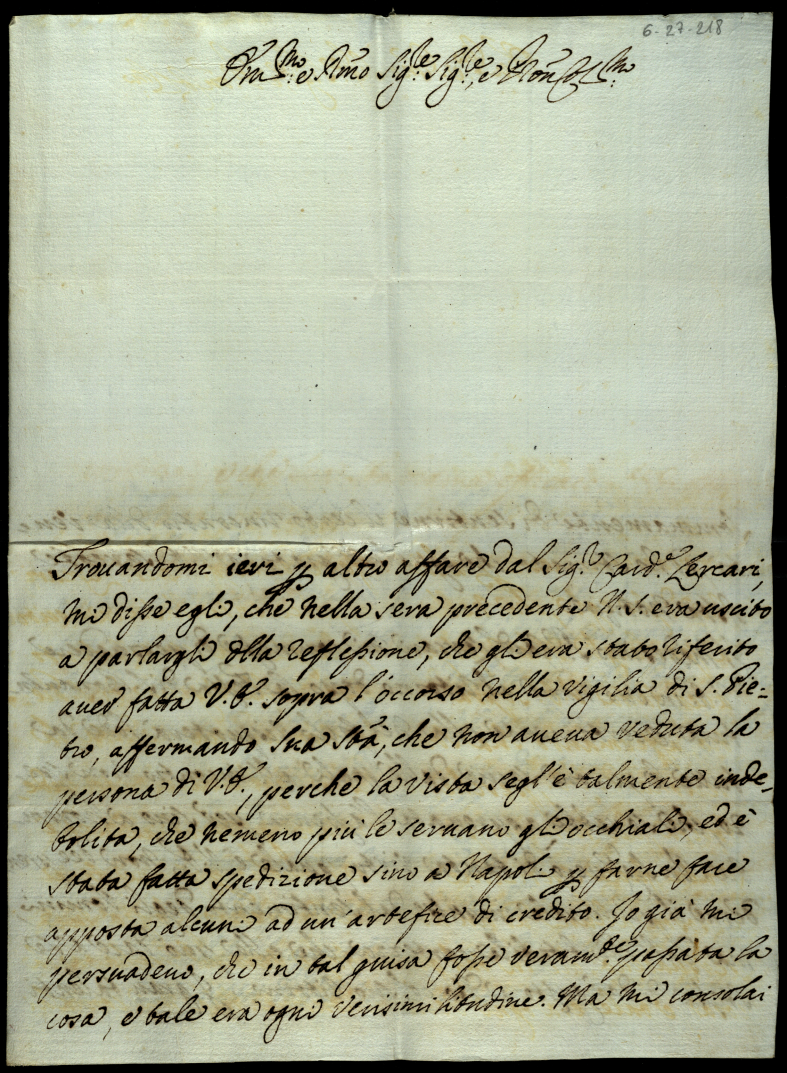 6-27-218
Em.mo e Rmo Sig.re Sig.re, e Pron Col.mo
Trouandomi ieri p altro affare dal Sig.r Card.e Lercari,
mi disse egli, che nella sera precedente N.S. era uscito
a parlargli dlla reflessione, che gli era stato riferito
auer fatta V.E. sopra l'occorso nella vigilia di S. Pie=
tro, affermando Sua Stà, che non aueua veduta la
persona di V.E., perche la vista segl'è talmente inde=
bolita, che nemeno più le seruano gli occhiali, ed è
stata fatta spedizione sino a Napoli p farne fare
apposta alcuni ad un'artefice di credito. Io già mi
persuadeuo, che in tal guisa fosse veram.te passata la
cosa, e tale era ogni verisimilitudine. Ma mi consolai